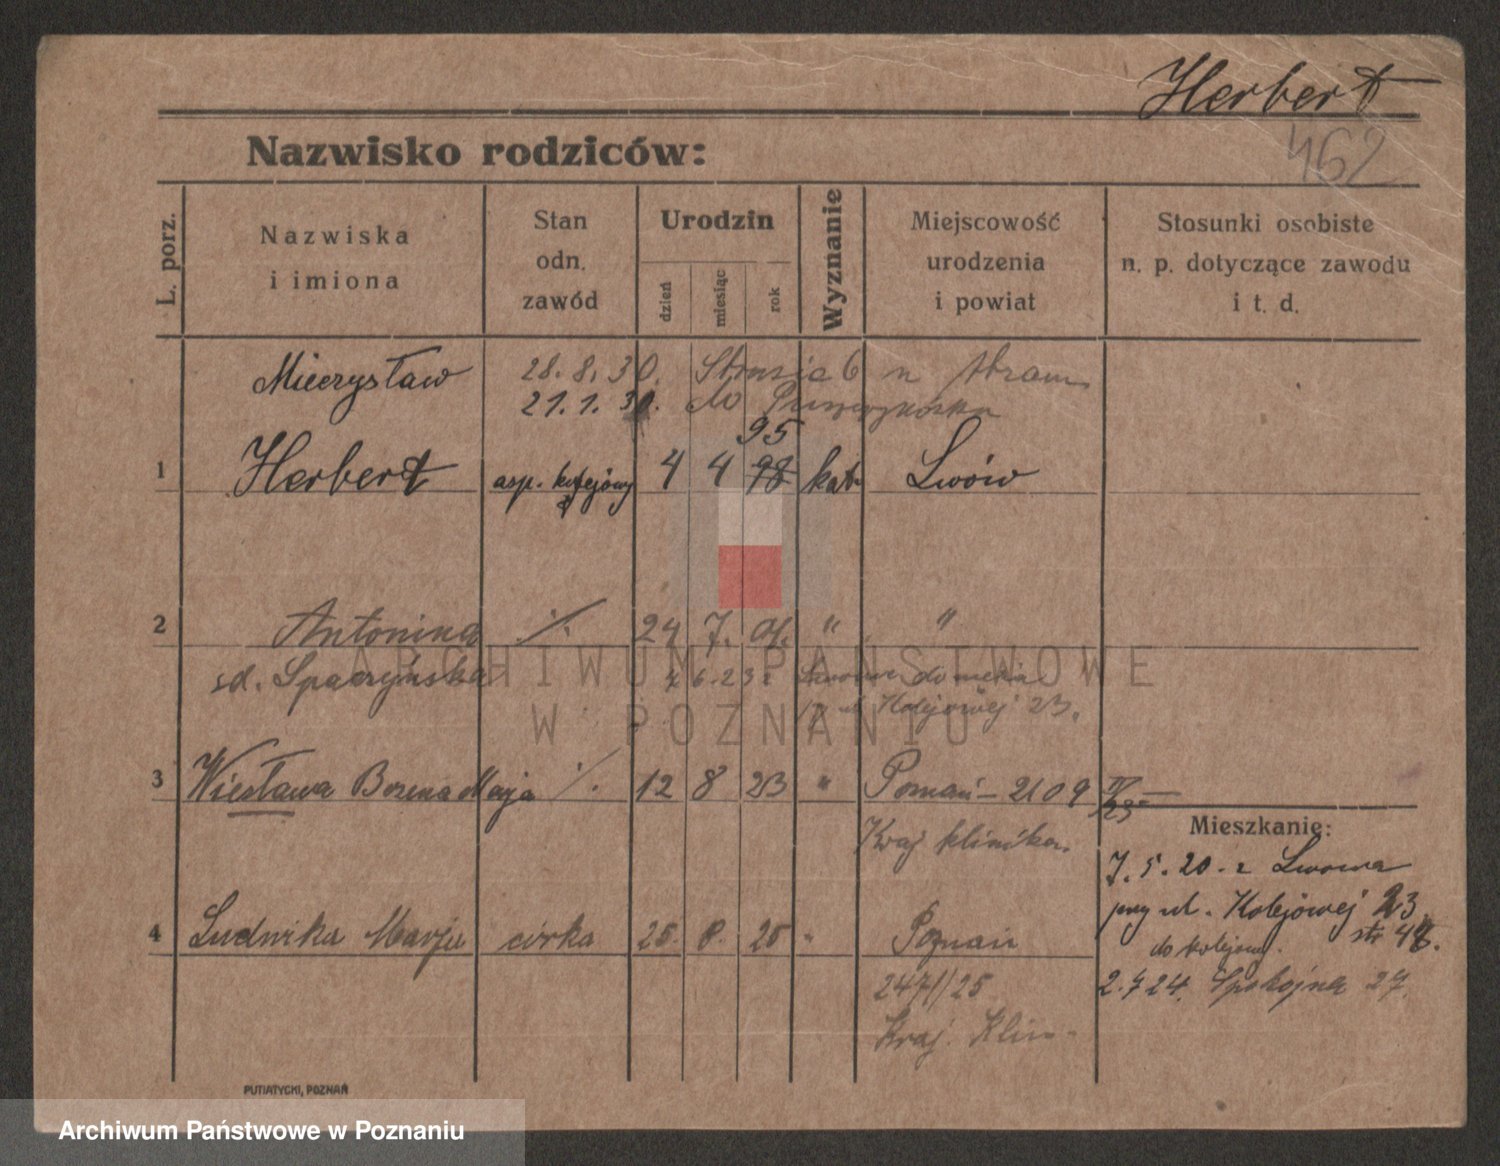 Herbert
462
Nazwisko rodziców:
L. porz.
Nazwiska i imiona
Stan odn. zawód
Urodzin
dzień
miesiąc
rok
Wyznanie
Miejscowość urodzenia i powiat
Stosunki osobiste n. p. dotyczące zawodu i t. d.
Mieczysław 28.8.30. Strusia 6
21.1. do
95
1 Herbert asp. kolejowy 4 4 98 kat Lwów
2 Antonina ./. 24 7. 04. " "
sd. Spaczyńska 6.23 z Lwowa do męża
ul Kolejowej 23.
3 Wiesława Bożena Maja ./. 12 8 23 " Poznań - 2109 IV/23
Kraj klinika.
Mieszkanie:
7.5.20. z Lwowa
przy ul. Kolejowej 23
do kolejowej.
4 Ludwika Marja córka 25. 8. 25 " Poznań
2471/25
Kraj. Klin.
2.7 24. Spokojna 27.
PUTIATYCKI, POZNAŃ
ARCHIWUM PAŃSTWOWE
W POZNANIU
Archiwum Państwowe w Poznaniu